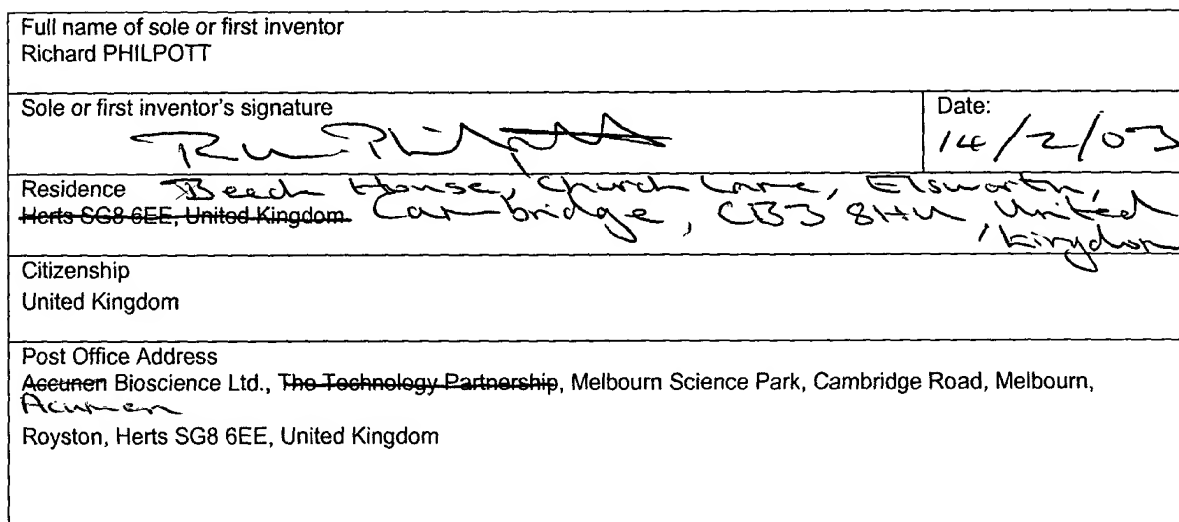 Full name of sole or first inventor
Richard PHILPOTT
Sole or first inventor's signature
Date:
R Philpott
14/2/03
Residence Beech House, Church Lane, Elsworth,
Herts SG8 6EE, United Kingdom Cambridge, CB3 8HU United
Kingdom
Citizenship
United Kingdom
Post Office Address
Accunen Bioscience Ltd., The Technology Partnership, Melbourn Science Park, Cambridge Road, Melbourn,
Acumen
Royston, Herts SG8 6EE, United Kingdom